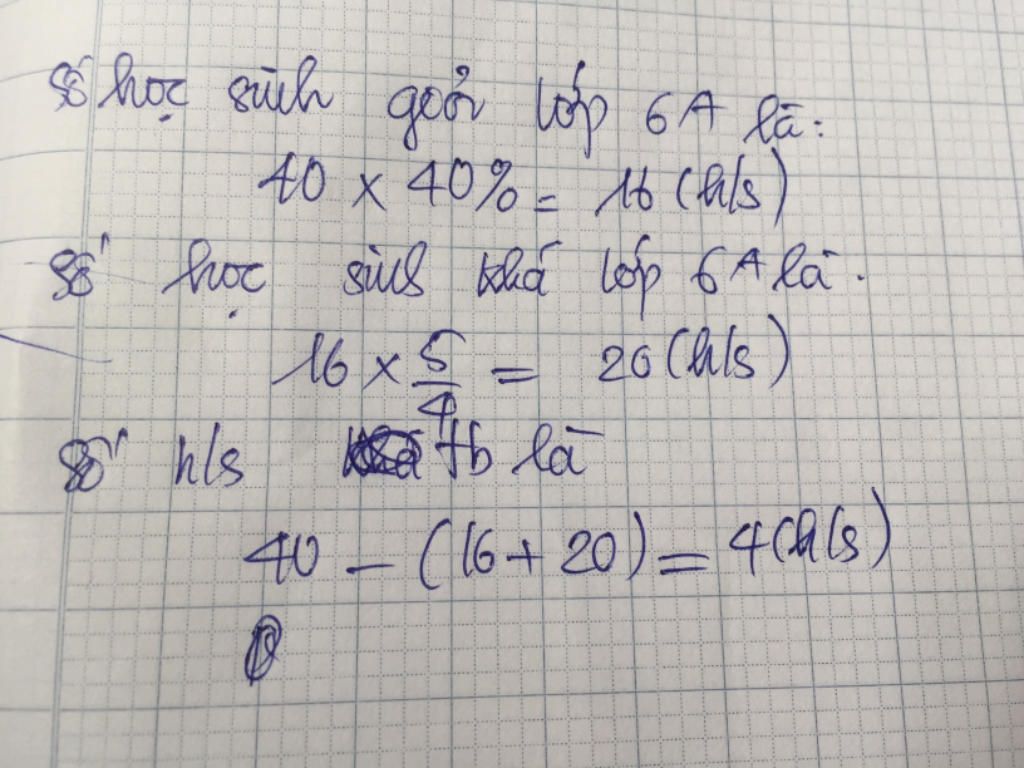 Số học sinh giỏi lớp 6A là:
40 x 40% = 16 (h/s)
Số học sinh khá lớp 6A là.
16 x 5/4 = 20 (h/s)
Số h/s tb là
40 - (16 + 20) = 4 (h/s)